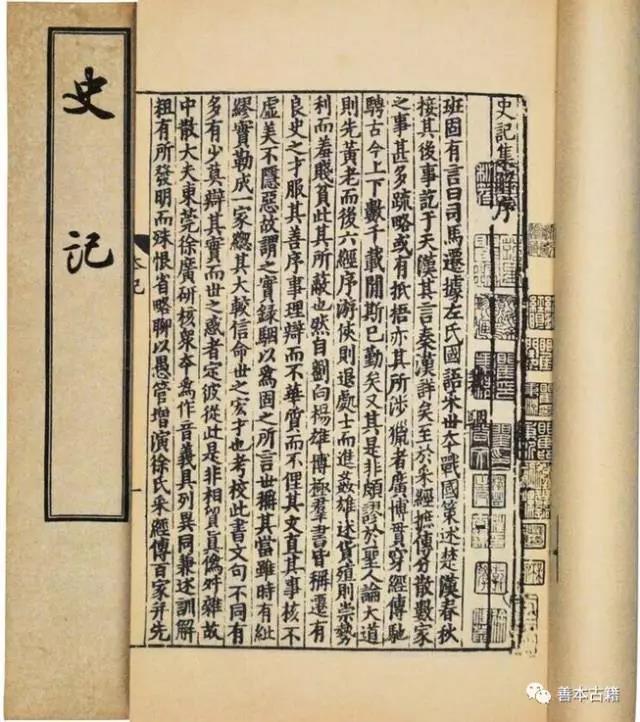 史記
史記集解序
班固有言曰司馬遷據左氏國語采丗夲戰國策述楚漢春秋
接其後事訖于天漢其言秦漢詳矣至於采經摭傳分散數家
之事甚多疏略或有抵梧亦其所涉獵者廣博貫穿經傳馳
騁古今上下數千載閒斯已勤矣又其是非頗謬於聖人論大道
則先黃老而後六經序游俠則退處士而進姦雄述貨殖則崇勢
利而羞賤貧此其所蔽也然自劉向楊雄博極羣書皆稱遷有
良史之才服其善序事理辯而不華質而不俚其文直其事核不
虛美不隱惡故謂之實録駰以爲固之所言世稱其當雖時有紕
繆實勒成一家總其大較信命世之宏才也考校此書文句不同有
多有少莫辯其實而世之惑者定彼從此是非相貿真僞舛雜故
中散大夫東莞徐廣研核衆夲爲作音義具列異同兼述訓解
粗有所發明而殊恨省略聊以愚管增演徐氏采經傳百家并先
善本古籍